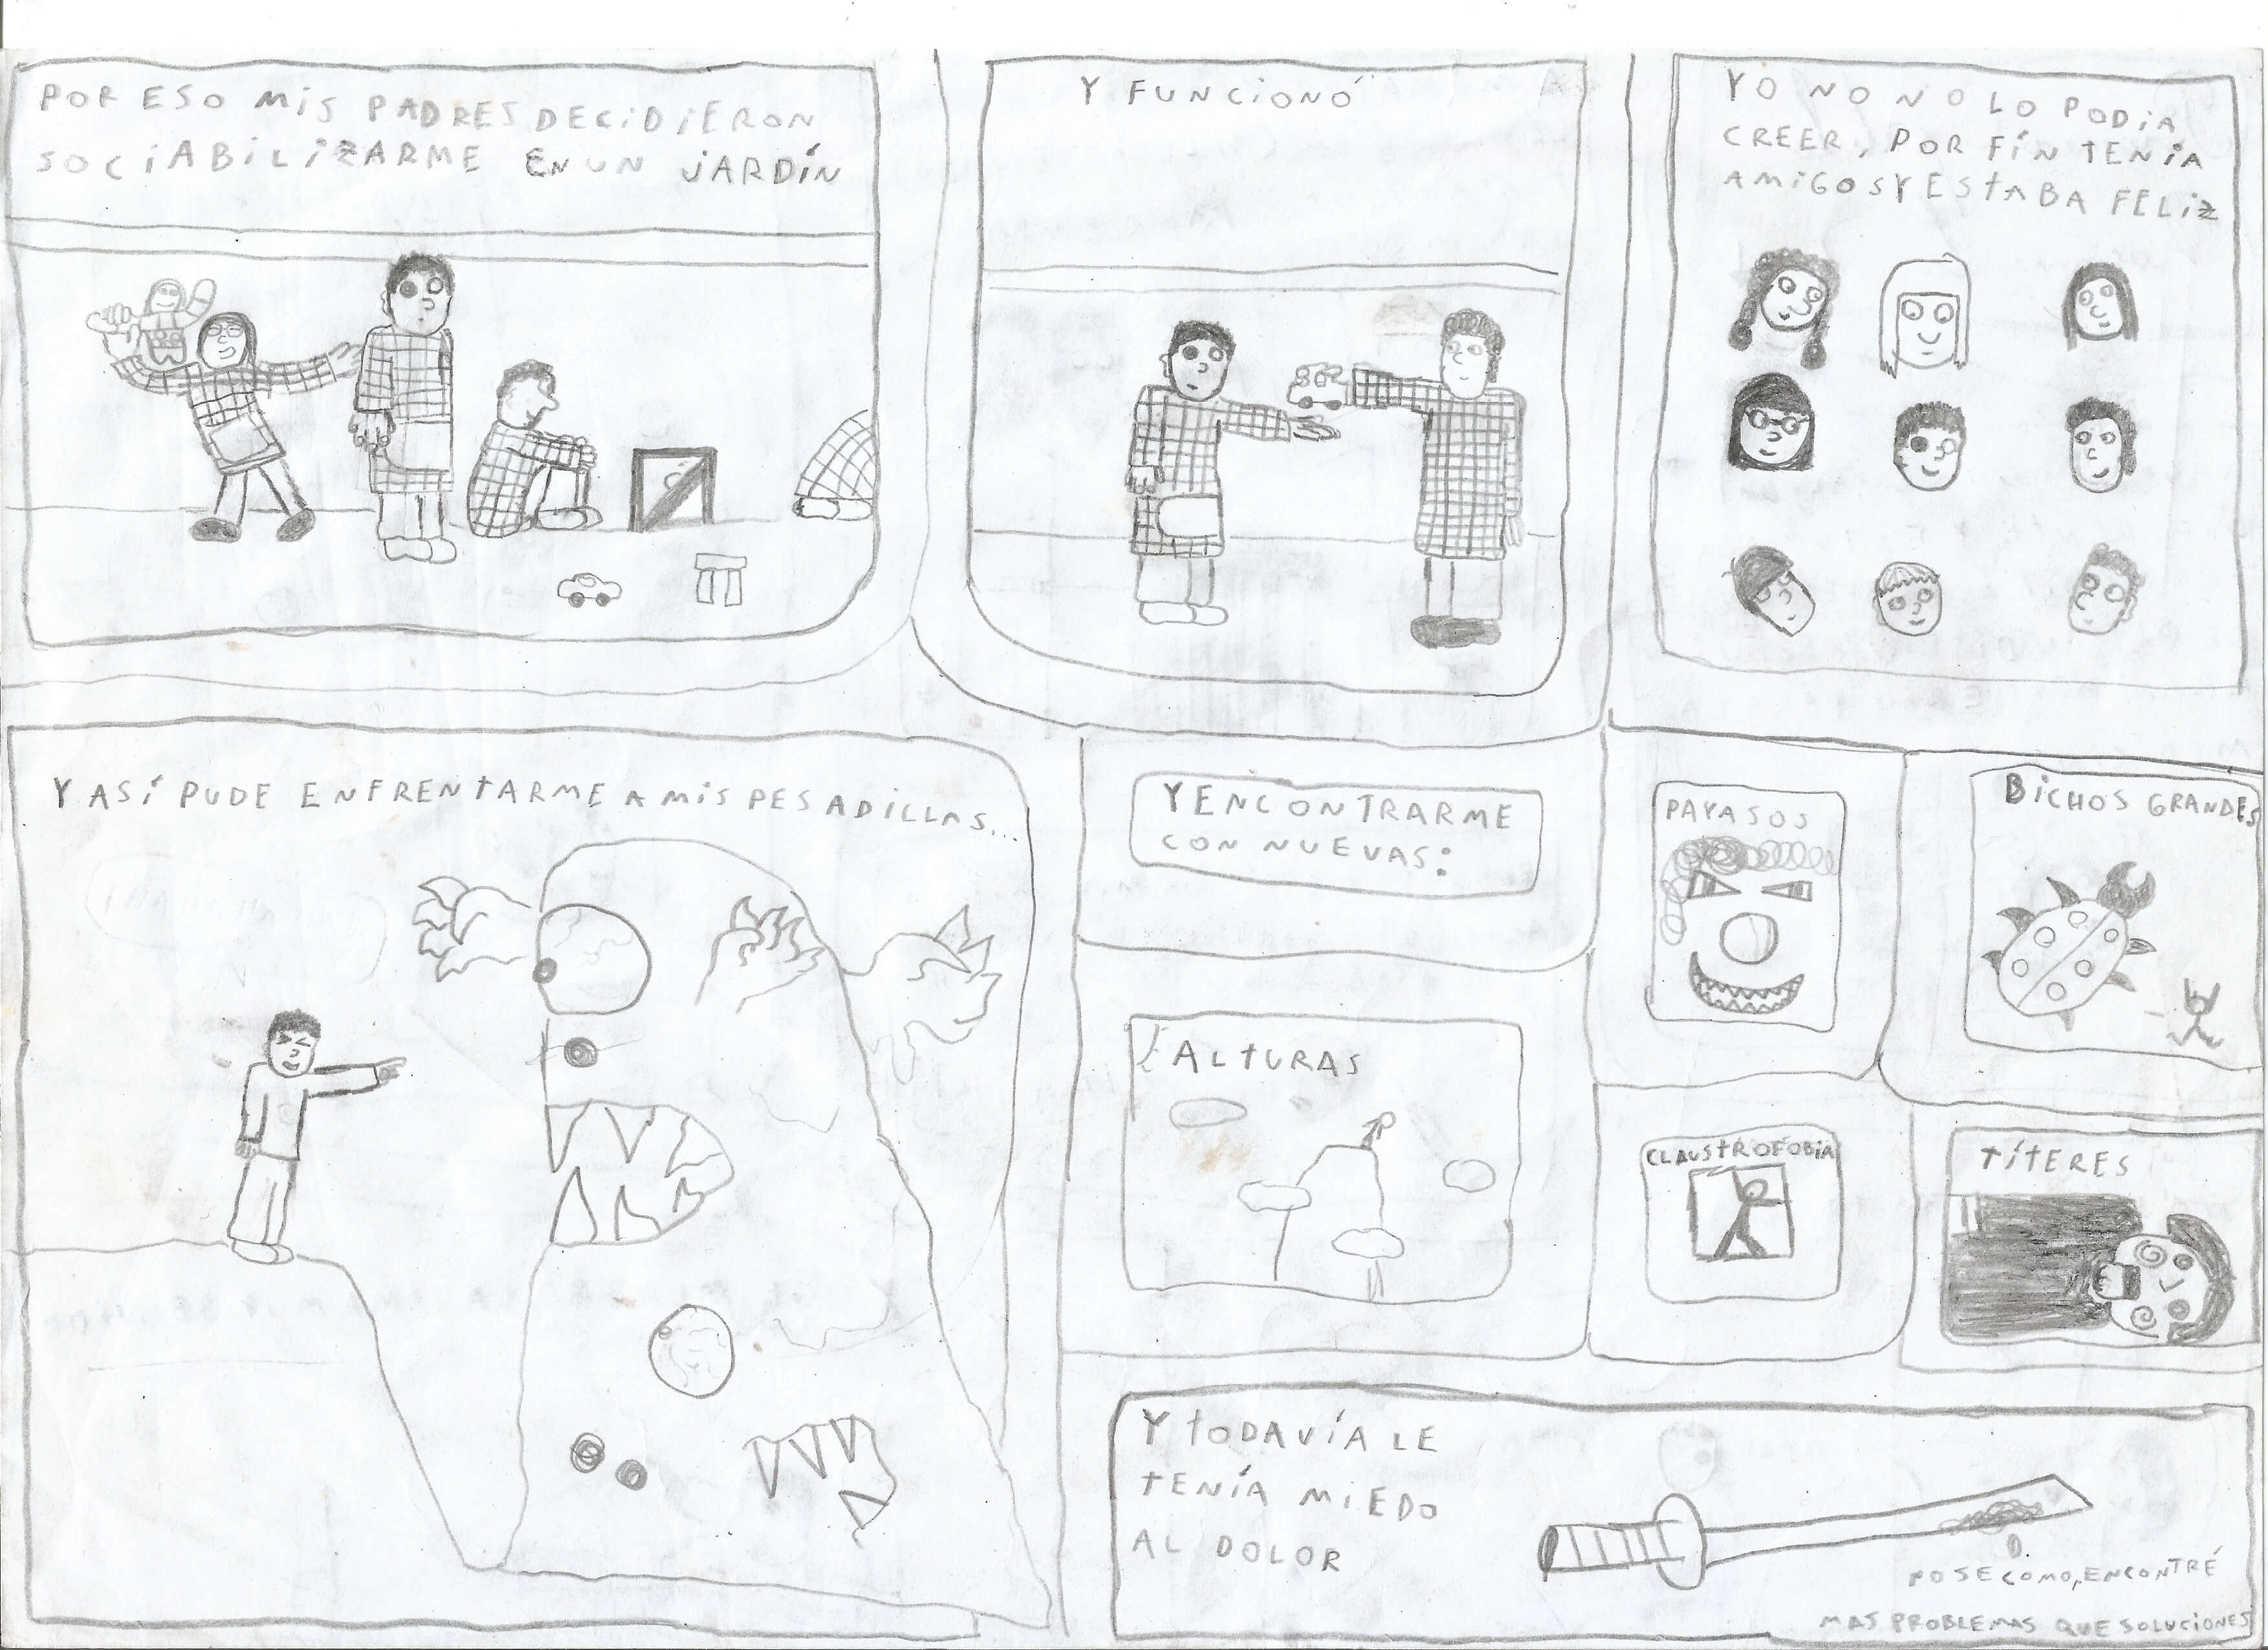 POR ESO MIS PADRES DECIDIERON
SOCIABILIZARME EN UN JARDÍN
Y FUNCIONÓ
YO NO NO LO PODIA
CREER, POR FÍN TENIA
AMIGOS Y ESTABA FELIZ
Y ASÍ PUDE ENFRENTARME A MIS PESADILLAS...
Y ENCONTRARME
CON NUEVAS:
PAYASOS
BICHOS GRANDES
ALTURAS
CLAUSTROFOBIA
TÍTERES
Y TODAVÍA LE
TENÍA MIEDO
AL DOLOR
NO SE COMO, ENCONTRÉ
MAS PROBLEMAS QUE SOLUCIONES